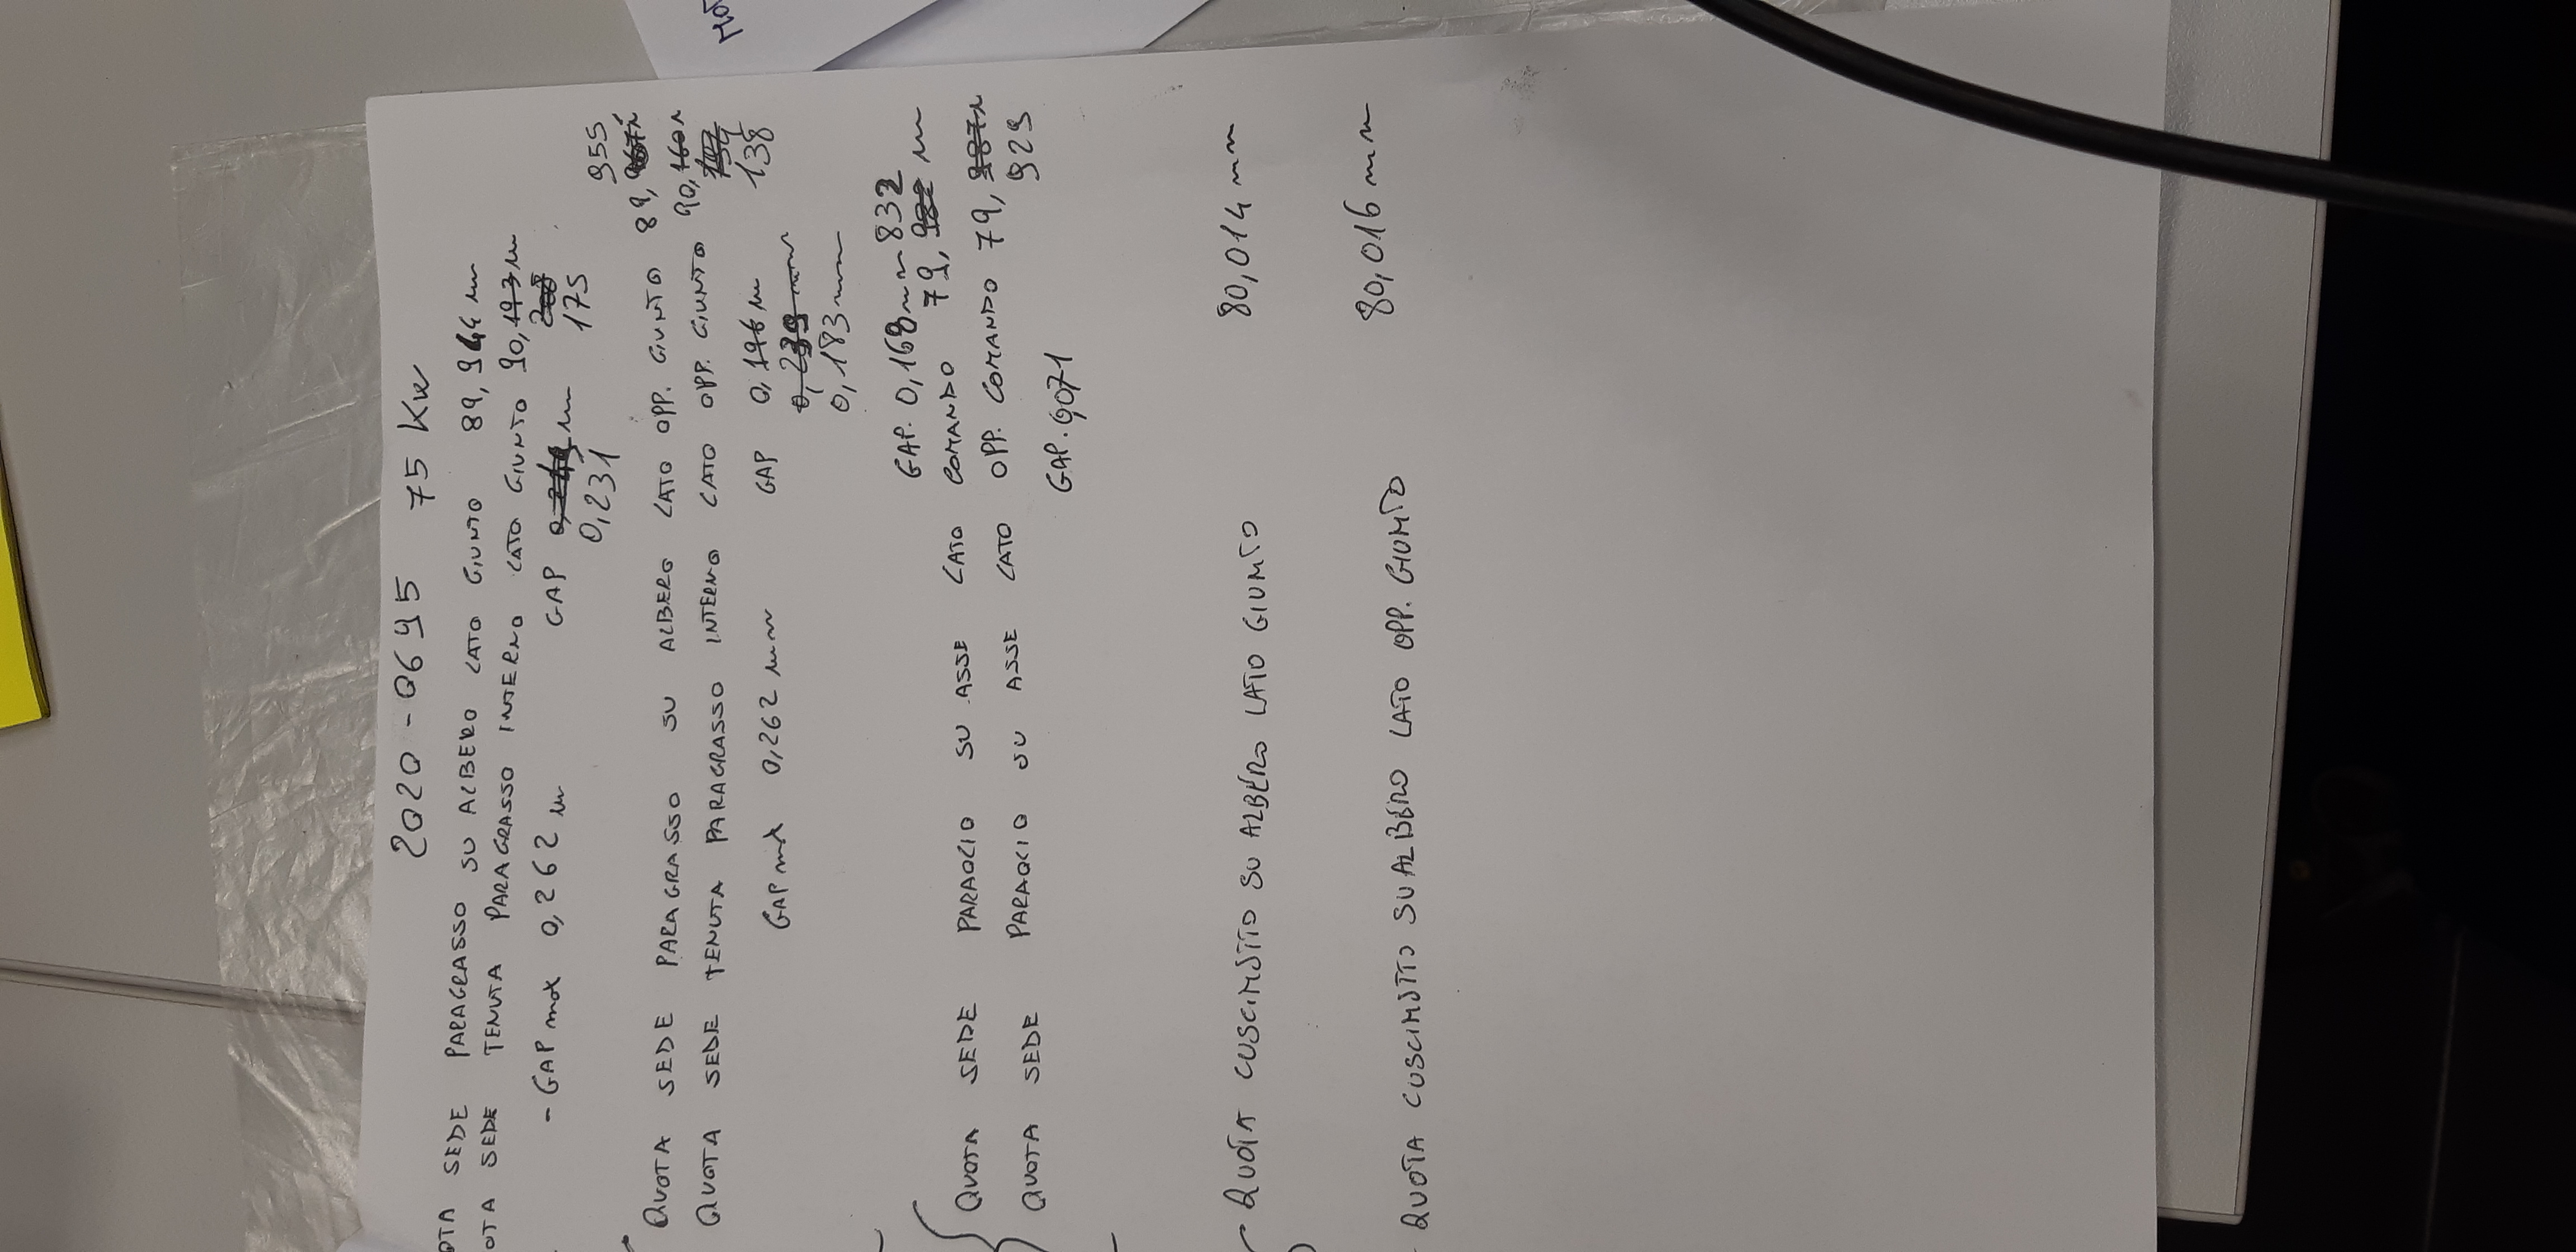 2020-0695 75 KW
OTA SEDE PARAGRASSO SU ALBERO LATO GIUNTO 89,944 m
OTA SEDE TENUTA PARAGRASSO INTERNO LATO GIUNTO 90,193 m
175
- GAP max 0,262 m GAP
0,231
955
QUOTA SEDE PARAGRASSO SU ALBERO LATO OPP. GIUNTO 89,
QUOTA SEDE TENUTA PARAGRASSO INTERNO LATO OPP. GIUNTO 90,160
138
GAP max 0,262 mm GAP 0,196 m
0,239 mm
0,183 mm
GAP. 0,168 mm 832
QUOTA SEDE PARAOLIO SU ASSE LATO COMANDO 79, m
QUOTA SEDE PARAOLIO SU ASSE LATO OPP. COMANDO 79,987
929
GAP. 0,071
QUOTA CUSCINETTO SU ALBERO LATO GIUNTO 80,014 mm
QUOTA CUSCINETTO SU ALBERO LATO OPP. GIUNTO 80,016 mm